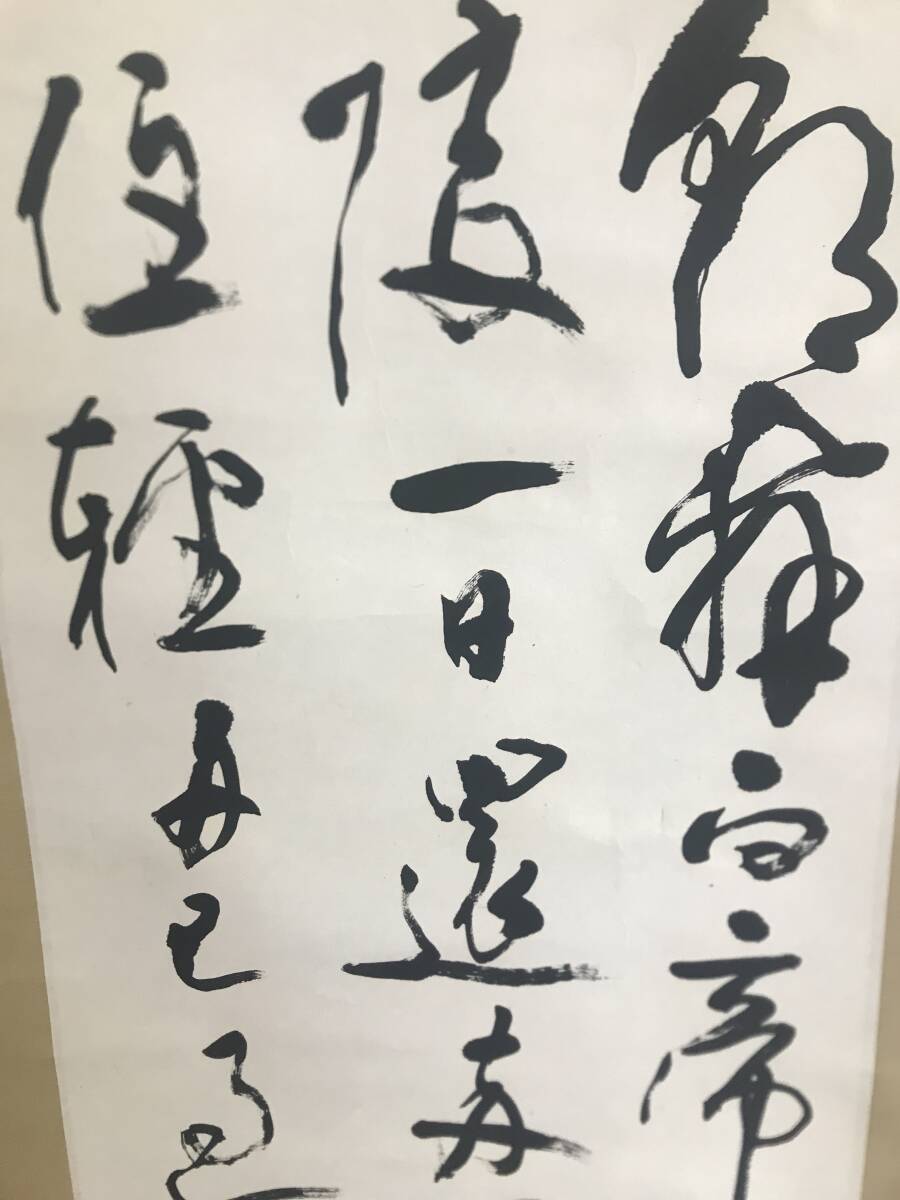 朝辭白帝
陵一日還兩
住輕舟已過